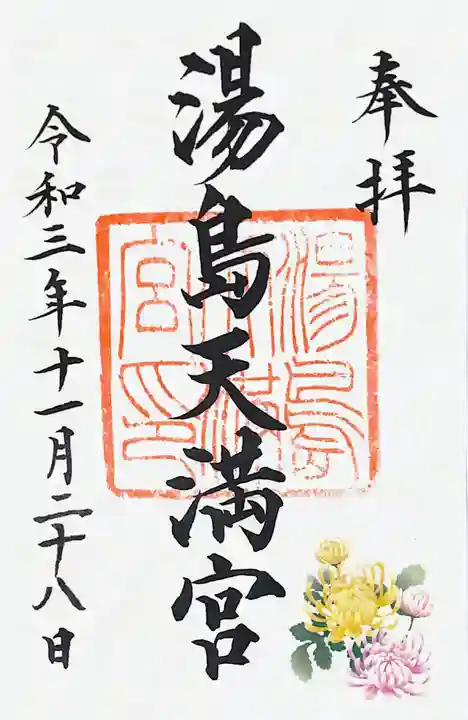 奉拝
湯島天満宮
令和三年十一月二十八日
湯島天満宮印